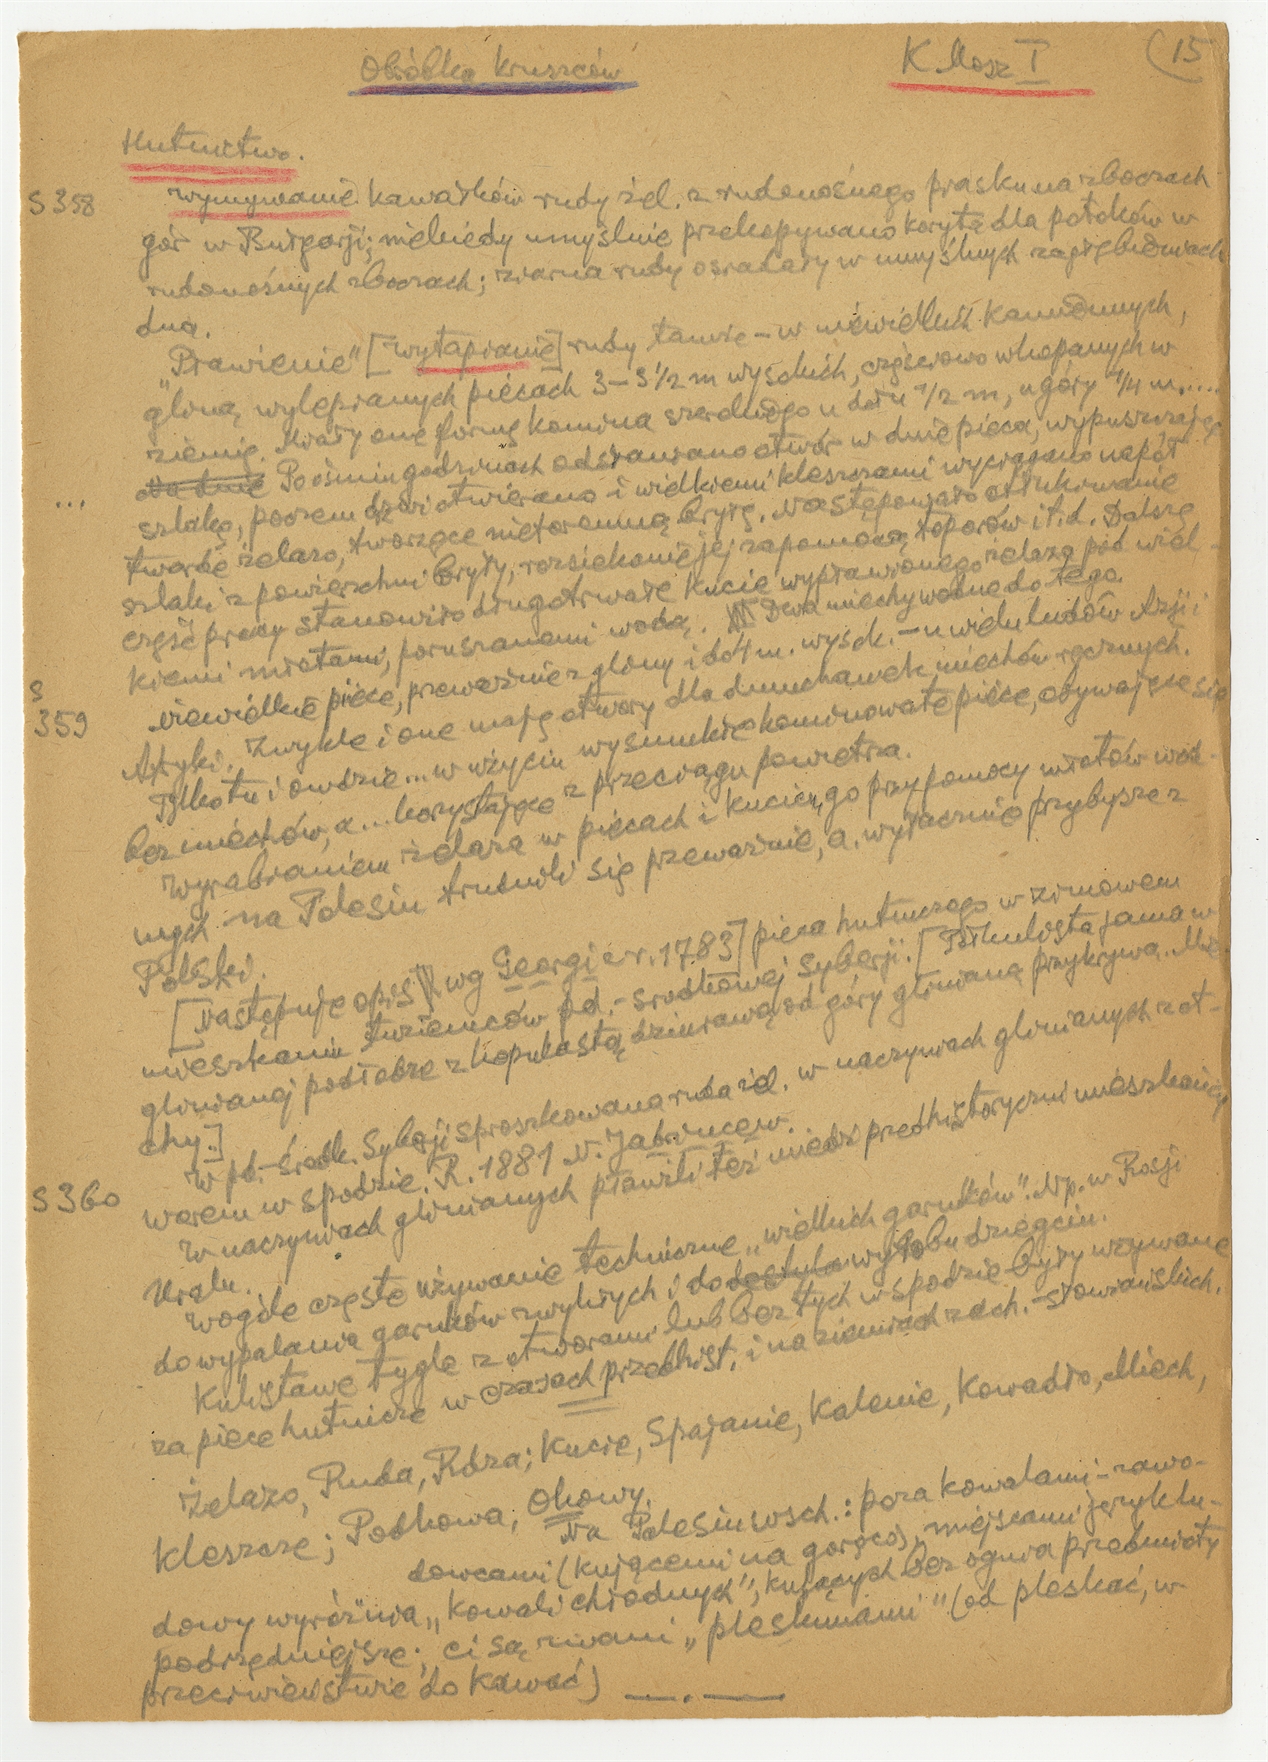 Obróbka kruszców K Mosz I (15
Hutnictwo.
S 358 Wymywanie kawałków rudy żel. z rudonośnego piasku na zboczach
gór w Bułgarji; niekiedy umyślnie przekopywano koryta dla potoków w
rudonośnych zboczach; ziarna rudy osiadały w umyślnych zagłębieniach
dna.
"Prawienie" [wytapianie] rudy tamże – w niewielkich kamiennych,
gliną wylepianych piecach 3–3 1/2 m wysokich, częściowo wkopanych w
ziemię. Miały one formę komina szerokiego u dołu 1/2 m, u góry 1/4 m.....
... Na dnie Po ośmiu godzinach odsłaniano otwór w dnie pieca, wypuszczając
szlakę, poczem drzwi otwierano i wielkiemi kleszczami wyciągano napół
twarde żelazo, tworzące nieforemną bryłę. Następowało otłukiwanie
szlaki z powierzchni bryły, rozsiekanie jej zapomocą toporów i t.d. Dalszą
część pracy stanowiło długotrwałe kucie wyprawionego żelaza pod wiel-
kiemi młotami, poruszanemi wodą. Dwa miechy wodne do tego.
S 359 Niewielkie piece, przeważnie z gliny i do 4 m. wysok. – u wielu ludów Azji i
Afryki. Zwykle i one mają otwory dla dmuchawek miechów ręcznych.
Tylko tu i owdzie... w użyciu wysmukłe kominowate piece, obywające się
bez miechów, a ... korzystające z przeciągu powietrza.
Wyrabianiem żelaza w piecach i kuciem go przy pomocy młotów wod-
nych na Polesiu trudnili się przeważnie, a. wyłącznie przybysze z
Polski.
[Następuje opis wg Georgi e r. 1783] pieca hutniczego w zimowem
mieszkaniu tuziemców pd.-środkowej Syberji. [Półkulista jama w
glinianej podłodze z kopulastą dziurawą od góry glinianą przykrywą. Mie-
chy.]
W pd.-środk. Syberji sproszkowana ruda żel. w naczyniach glinianych z ot-
worem w spodzie. R. 1881 N. Jadrincew.
S 360 W naczyniach glinianych pławili też miedź przedhistoryczni mieszkańcy
Uralu.
Wogóle częste używanie techniczne "wielkich garnków". Np. w Rosji
do wypalania garnków zwykłych i do destyla wyrobu dziegciu.
Kulistawe tygle z otworami lub bez tych w spodzie były używane
za piece hutnicze w czasach przedhist. i na ziemiach zach.-słowiańskich.
Żelazo, Ruda, Rdza; Kucie, Spajanie, Kalenie, Kowadło, Miech,
Kleszcze; Podkowa, Okowy.
Na Polesiu wsch.: poza kowalami-zawo-
dowcami (kującemi na gorąco), miejscami język lu-
dowy wyróżnia "kowali chłodnych", kujących bez ognia przedmioty
podrzędniejsze; ci są zwani "pleskunami" (od pleskać, w
przeciwieństwie do kawać)